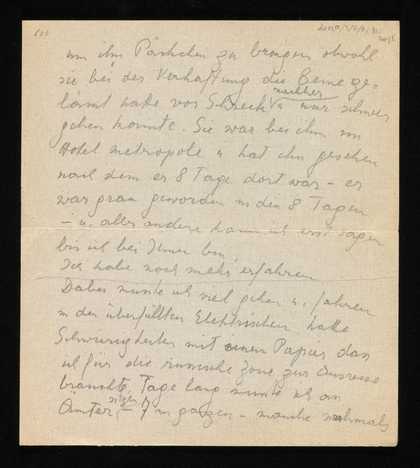 um ihm Päckchen zu bringen obwohl
sie bei der Verhaftung die Beine ge-
nachher
lähmt hatte vor Schreck u nur schwer
gehen konnte. Sie war bei ihm im
Hotel Metropole u hat ihn gesehen
nach dem er 8 Tage dort war – er
war grau geworden in den 8 Tagen
– u. alles andere kann ich erst sagen
bis ich bei Ihnen bin.
Ich habe noch mehr erfahren
Dabei musste ich viel gehen u. fahren
in den überfüllten Elektrischen, hatte
Schwierigkeiten mit einem Papier das
ich für die russische Zone zur Ausreise
brauchte. Tage lang musste ich an
Ämter – 7 im ganzen – manche mehrmals